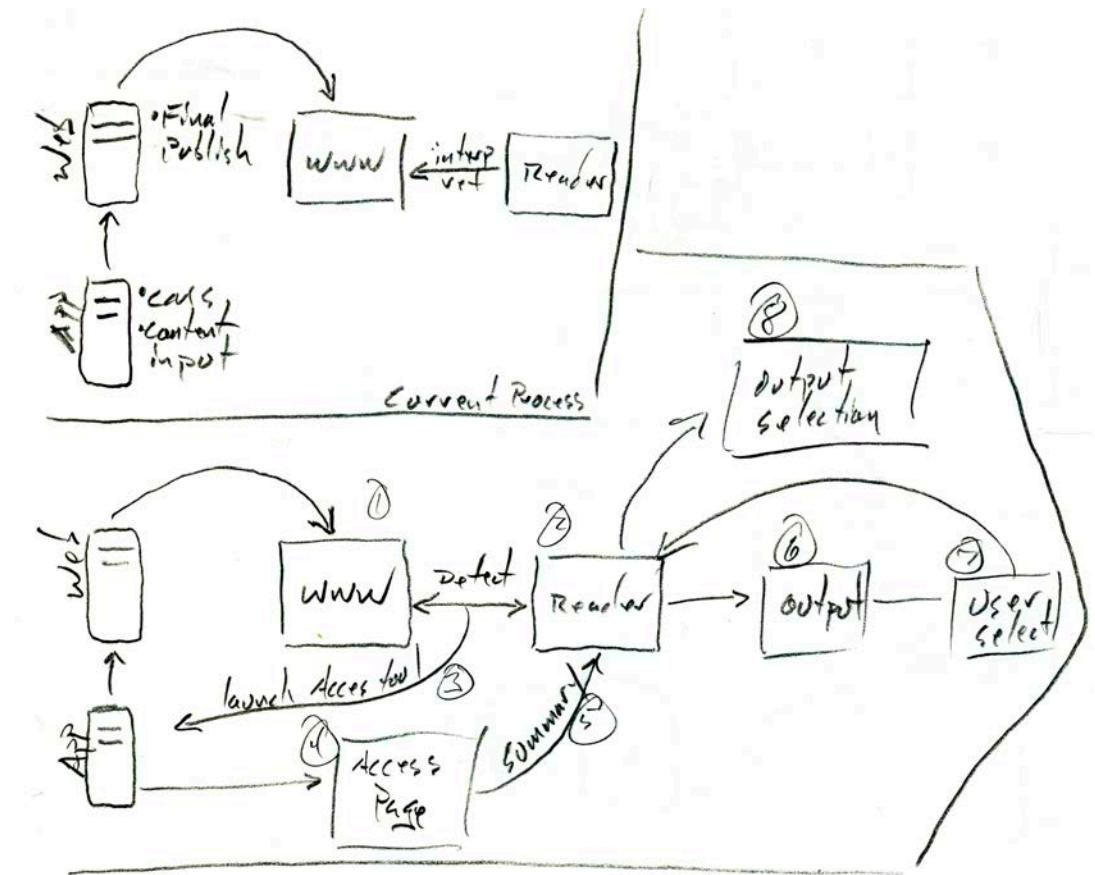 Web
• Final
Publish
WWW
interp
ret
Reader
App
• content
input
Current Process
8
output
selection
Web
1
WWW
Detect
2
Reader
6
output
7
User
select
launch Access tool
3
App
4
Access
Page
Summary
5